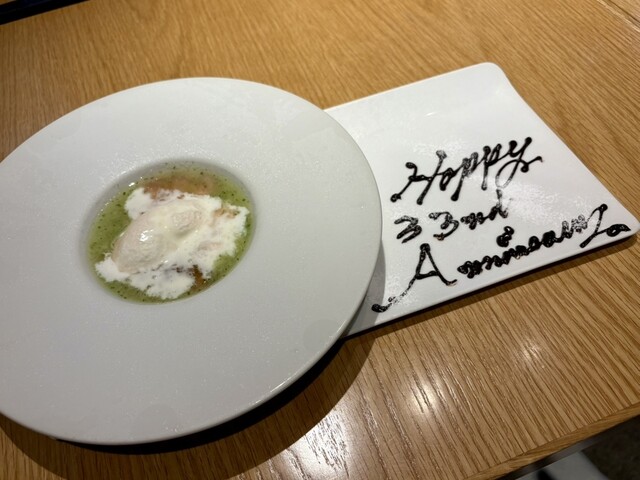 Happy
33nd
Anniversary